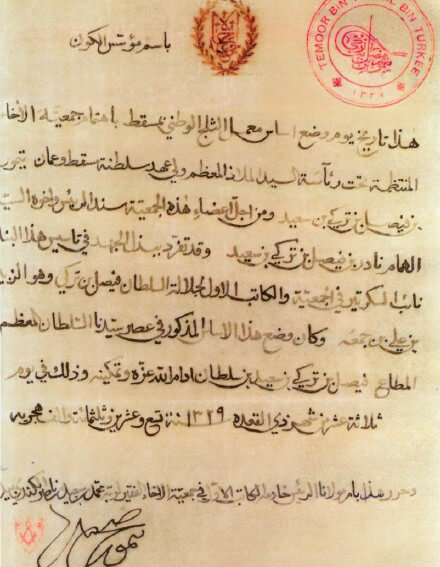 باسم مؤسس الكون
TEMOOR BIN BIN TURKEE
١٣٢٧
هذا تاريخ يوم وضع اساس معمل الثلج الوطني بمسقط باهتمام جمعية الاخاء
المنتظمة تحت رئاسة السيد الملاذ المعظم ولي عهد سلطنة مسقط وعمان تيمور
بن فيصل بن تركي بن سعيد ومن اجل اعضاء هذه الجمعية سند الرئيس
الهمام نادر بن فيصل بن تركي بن سعيد وقد تفرد ببذل الجهد في تاسيس هذا
نائب السكرتير في الجمعية والكاتب الاول لجلالة السلطان فيصل بن تركي وهو
بن علي بن جمعه وكان وضع هذا الاساس المذكور في عصر سيدنا السلطان المعظم
المطاع فيصل بن تركي بن سعيد بن سلطان ادام الله عزه وتمكينه وذلك في يوم
ثلاثة عشر من شهر ذي القعدة ١٣٢٩ سنة تسع وعشرين وثلثمائة والف هجريه
وحرر هذا بامر مولانا الرئيس خادمه الكاتب الاول في جمعية الاخاء الفقير لربه محمد بن سعيد